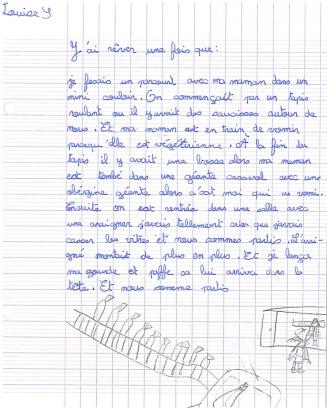 Louise S
J'ai rêver une fois que :
je fesais un parcourt avec ma maman dans un
mini couloir. On commençait par un tapis
roulant ou il y avait des saucisses autour de
nous. Et ma maman est en train de vomir
parsqu'elle est végétarienne. A la fin du
tapis il y avait une bosse alors ma maman
est tombé dans une géante casserol avec une
obèrgine géante alors c'est moi qui a vomi.
Ensuite on est rentrée dans une salle avec
une araigner j'avais tellement crier que j'avais
casser les vitres et nous sommes partis. L'arai-
gné montait de plus en plus. Et je lança
ma gourde et paffe sa lui arriva dans la
tête. Et nous somme partis